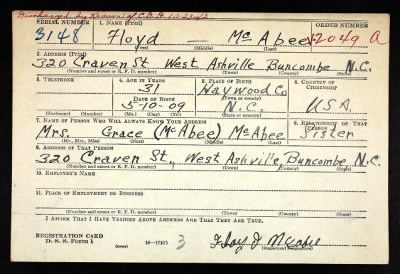 Discharged by Reason of
SERIAL NUMBER 1. NAME (Print) ORDER NUMBER
3148 Floyd Mc Abee 12049 A
(First) (Middle) (Last)
2. ADDRESS (Print)
320 Craven St West Ashville Buncombe N.C.
(Number and street or R. F. D. number) (Town) (County) (State)
3. TELEPHONE 4. AGE IN YEARS 5. PLACE OF BIRTH 6. COUNTRY OF CITIZENSHIP
31 Haywood Co
DATE OF BIRTH (Town or county)
5-10-09 N.C. USA
(Exchange) (Number) (Mo.) (Day) (Yr.) (State or country)
7. NAME OF PERSON WHO WILL ALWAYS KNOW YOUR ADDRESS 8. RELATIONSHIP OF THAT PERSON
Mrs. Grace (McAbee) McAbee Sister
(Mr., Mrs., Miss) (First) (Middle) (Last)
9. ADDRESS OF THAT PERSON
320 Craven St., West Ashville, Buncombe, N.C.
(Number and street or R. F. D. number) (Town) (County) (State)
10. EMPLOYER'S NAME
11. PLACE OF EMPLOYMENT OR BUSINESS
(Number and street or R. F. D. number) (Town) (County) (State)
I AFFIRM THAT I HAVE VERIFIED ABOVE ANSWERS AND THAT THEY ARE TRUE.
REGISTRATION CARD
D. S. S. FORM 1 (over) 16-17105 3 Floy J McAbee